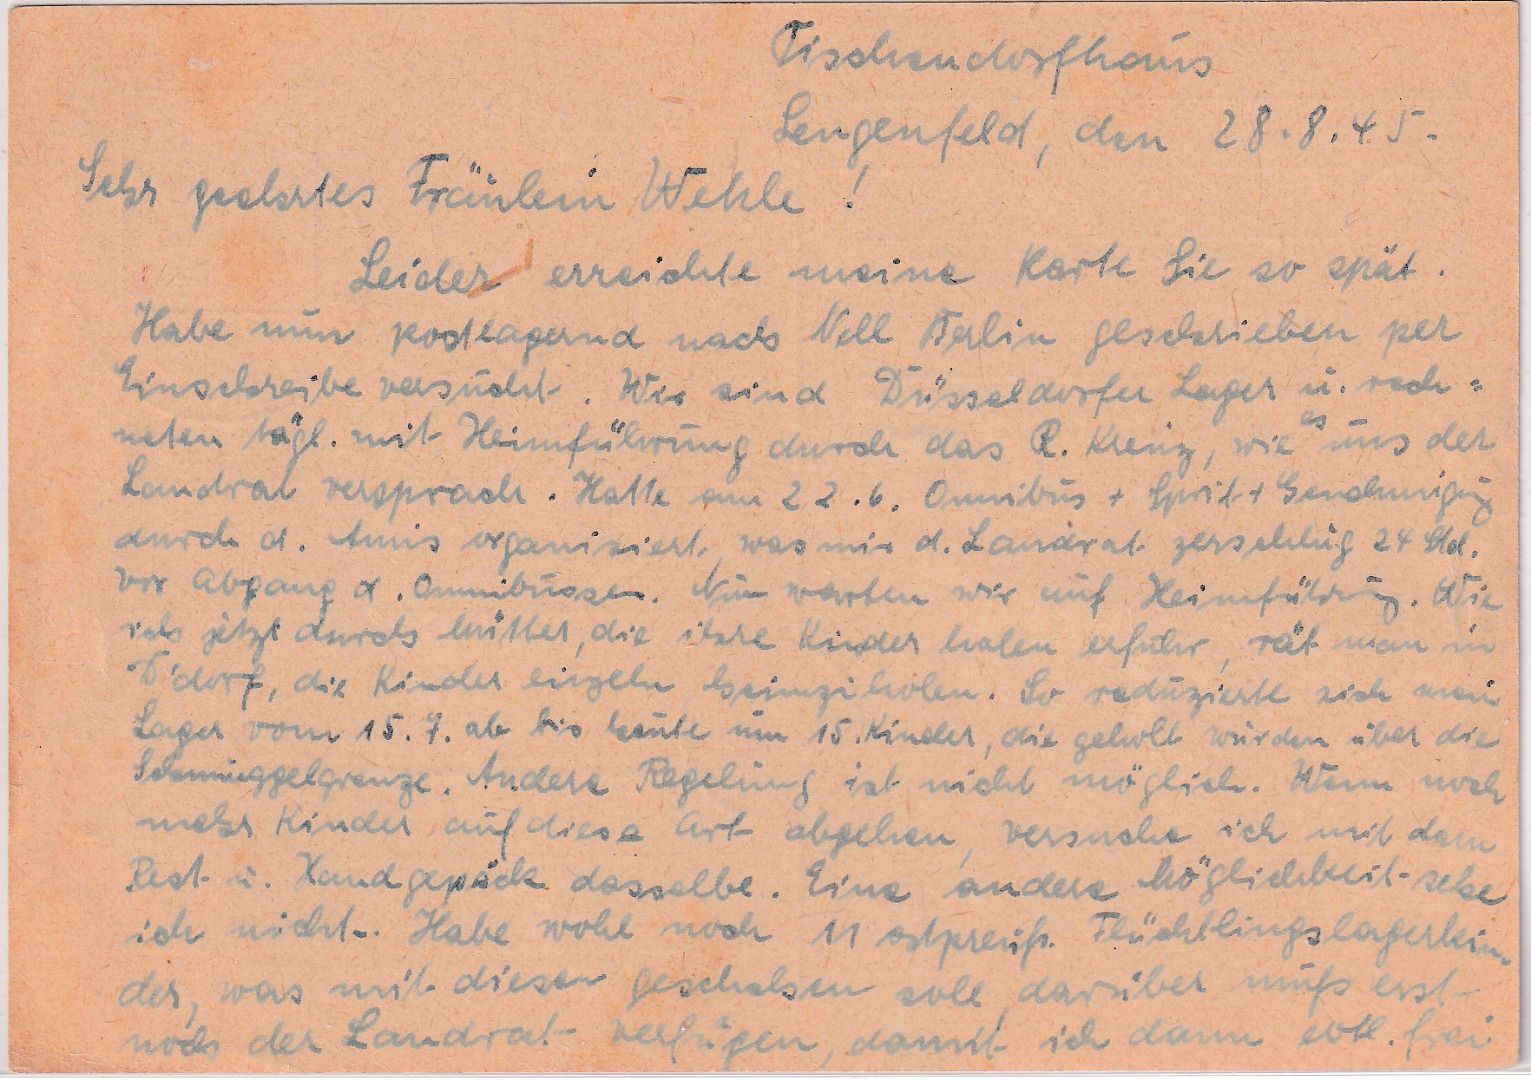 Tischendorfhaus
Lengenfeld, den 28.8.45.
Sehr geehrtes Fräulein Wehle!
Leider erreichte meine Karte Sie so spät.
Habe nun postlagernd nach Berlin geschrieben per
Einschreibe versucht. Wir sind Düsseldorfer Lager u. rech-
neten tägl. mit Heimführung durch das R. Kreuz, wie es uns der
Landrat versprach. Hatte am 22.6. Omnibus + Sprit + Genehmigung
durch d. Amis organisiert, was mir d. Landrat zerschlug 24 Std.
vor Abgang d. Omnibusses. Nun warten wir auf Heimführung. Wie
ich jetzt durch Mütter, die ihre Kinder holen erfuhr, rät man in
D'dorf, die Kinder einzeln heimzuholen. So reduzierte sich mein
Lager vom 15.7. ab bis heute um 15 Kinder, die geholt wurden über die
Schmuggelgrenze. Andere Regelung ist nicht möglich. Wenn noch
mehr Kinder auf diese Art abgehen, versuche ich mit dem
Rest u. Handgepäck dasselbe. Eine andere Möglichkeit sehe
ich nicht. Habe wohl noch 11 ostpreuß. Flüchtlingslagerkin-
der, was mit diesen geschehen soll, darüber muß erst
noch der Landrat verfügen, damit ich dann evtl. frei